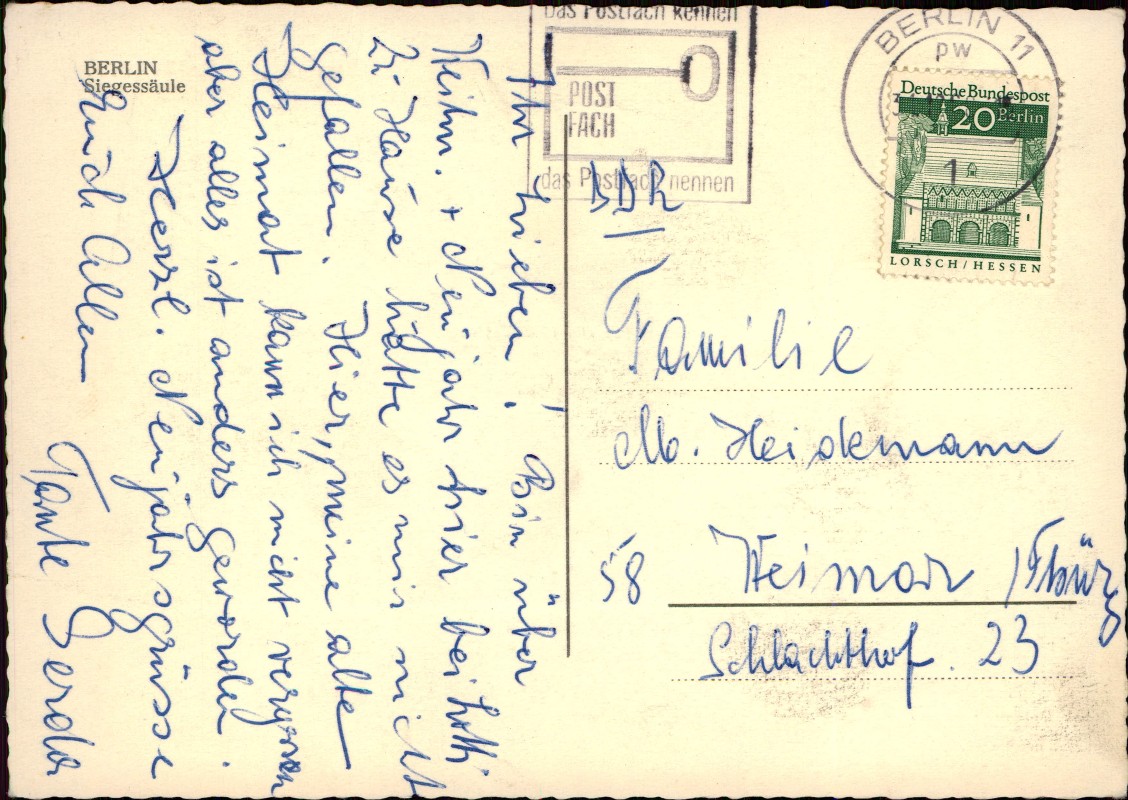 BERLIN
Siegessäule
Ihr Lieben! Bin über
Weihn. + Neujahr hier bei Lotti
Zu Hause hätte es mir nicht
gefallen. Hier, meine alte
Heimat kann ich nicht vergessen
aber alles ist anders geworden.
Herzl. Neujahrsgrüsse
Euch Allen
Tante Gerda
Das Postfach kennen
POST
FACH
das Postfach nennen
BERLIN 11
pw
1
Deutsche Bundespost
20 Berlin
LORSCH / HESSEN
DDR
Familie
M. Heidemann
58 Weimar / Thürg
Schlachthof. 23